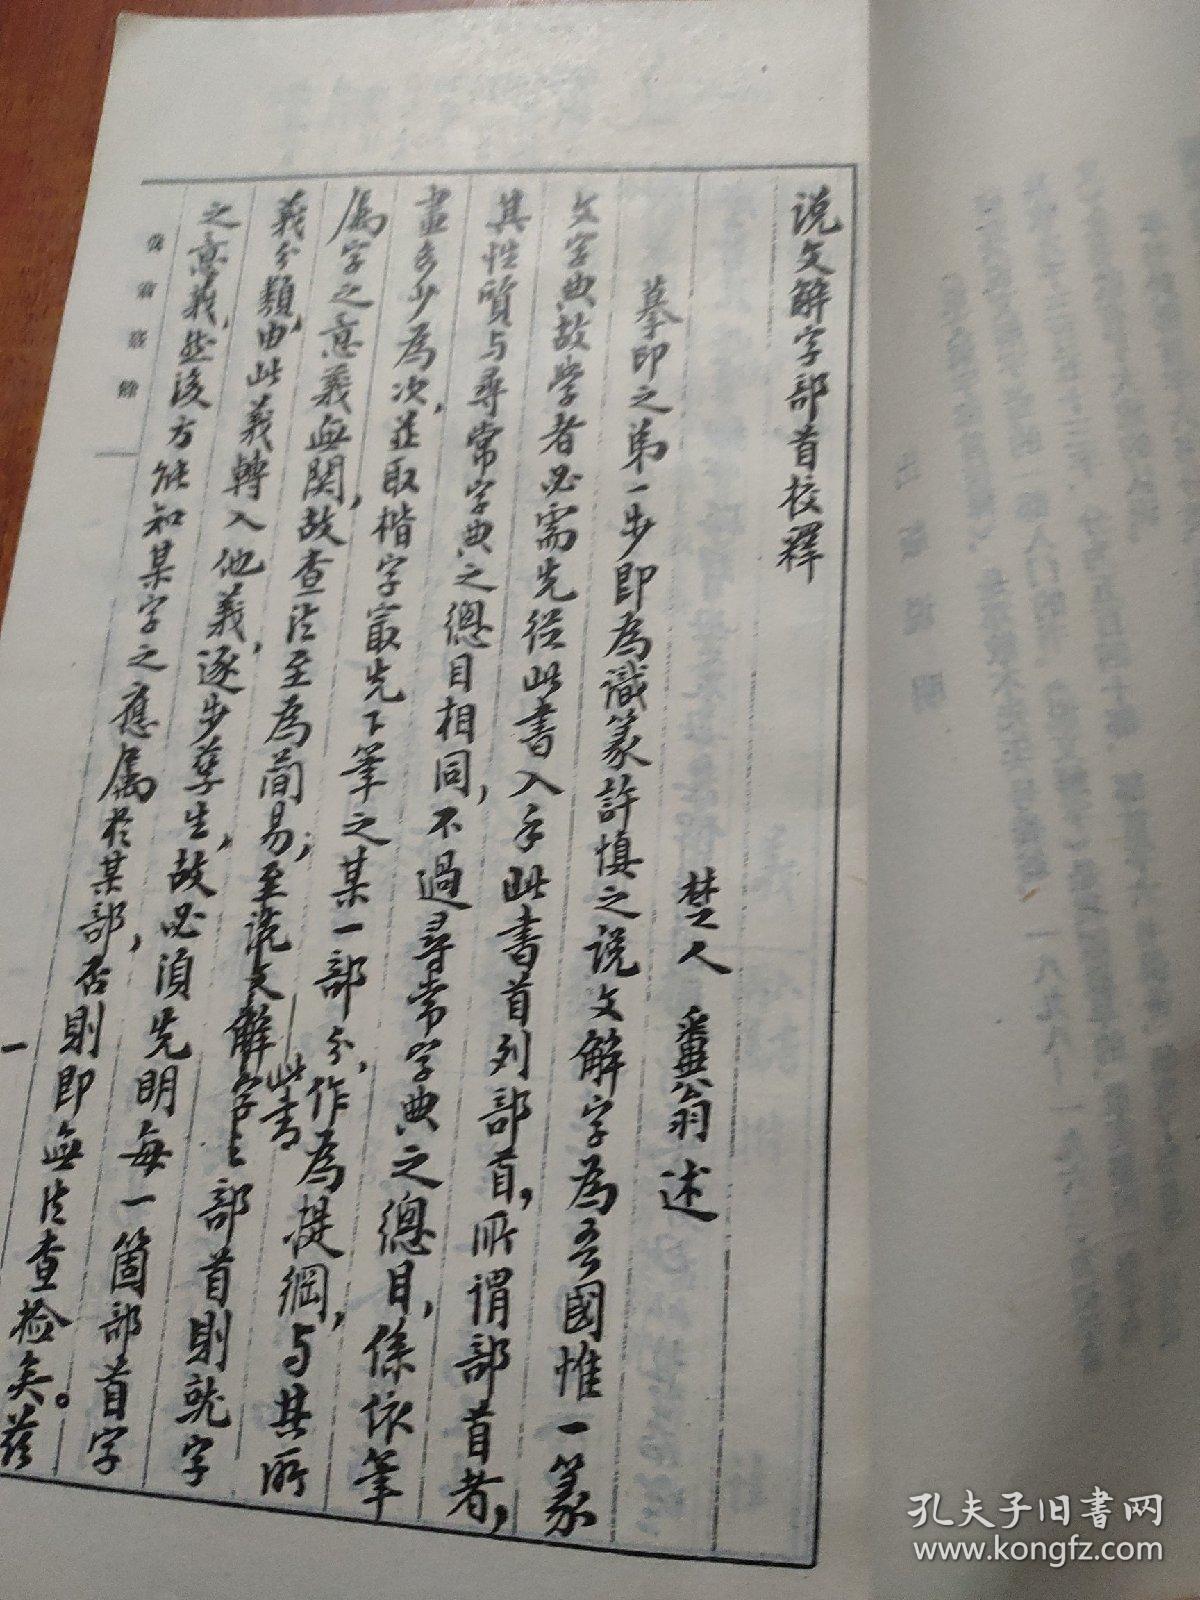 说文解字部首校釋
楚人 糞翁 述
摹印之第一步即為識篆許慎之说文解字為吾國惟一篆
文字典故学者必需先從此書入手此書首列部首，所謂部首者，
其性質与尋常字典之總目相同，不過尋常字典之總目，係依筆
畫多少為次，並取楷字最先下筆之某一部分，作為提綱，与其所
属字之意義無関，故查法至為简易；至说文解字此書之部首則就字
義分類，由此義轉入他義，逐步孳生，故必須先明每一箇部首字
之意義，然後方能知某字之應属於某部，否則即無法查檢矣。茲
糞翁落餘
一
孔夫子旧书网
www.kongfz.com